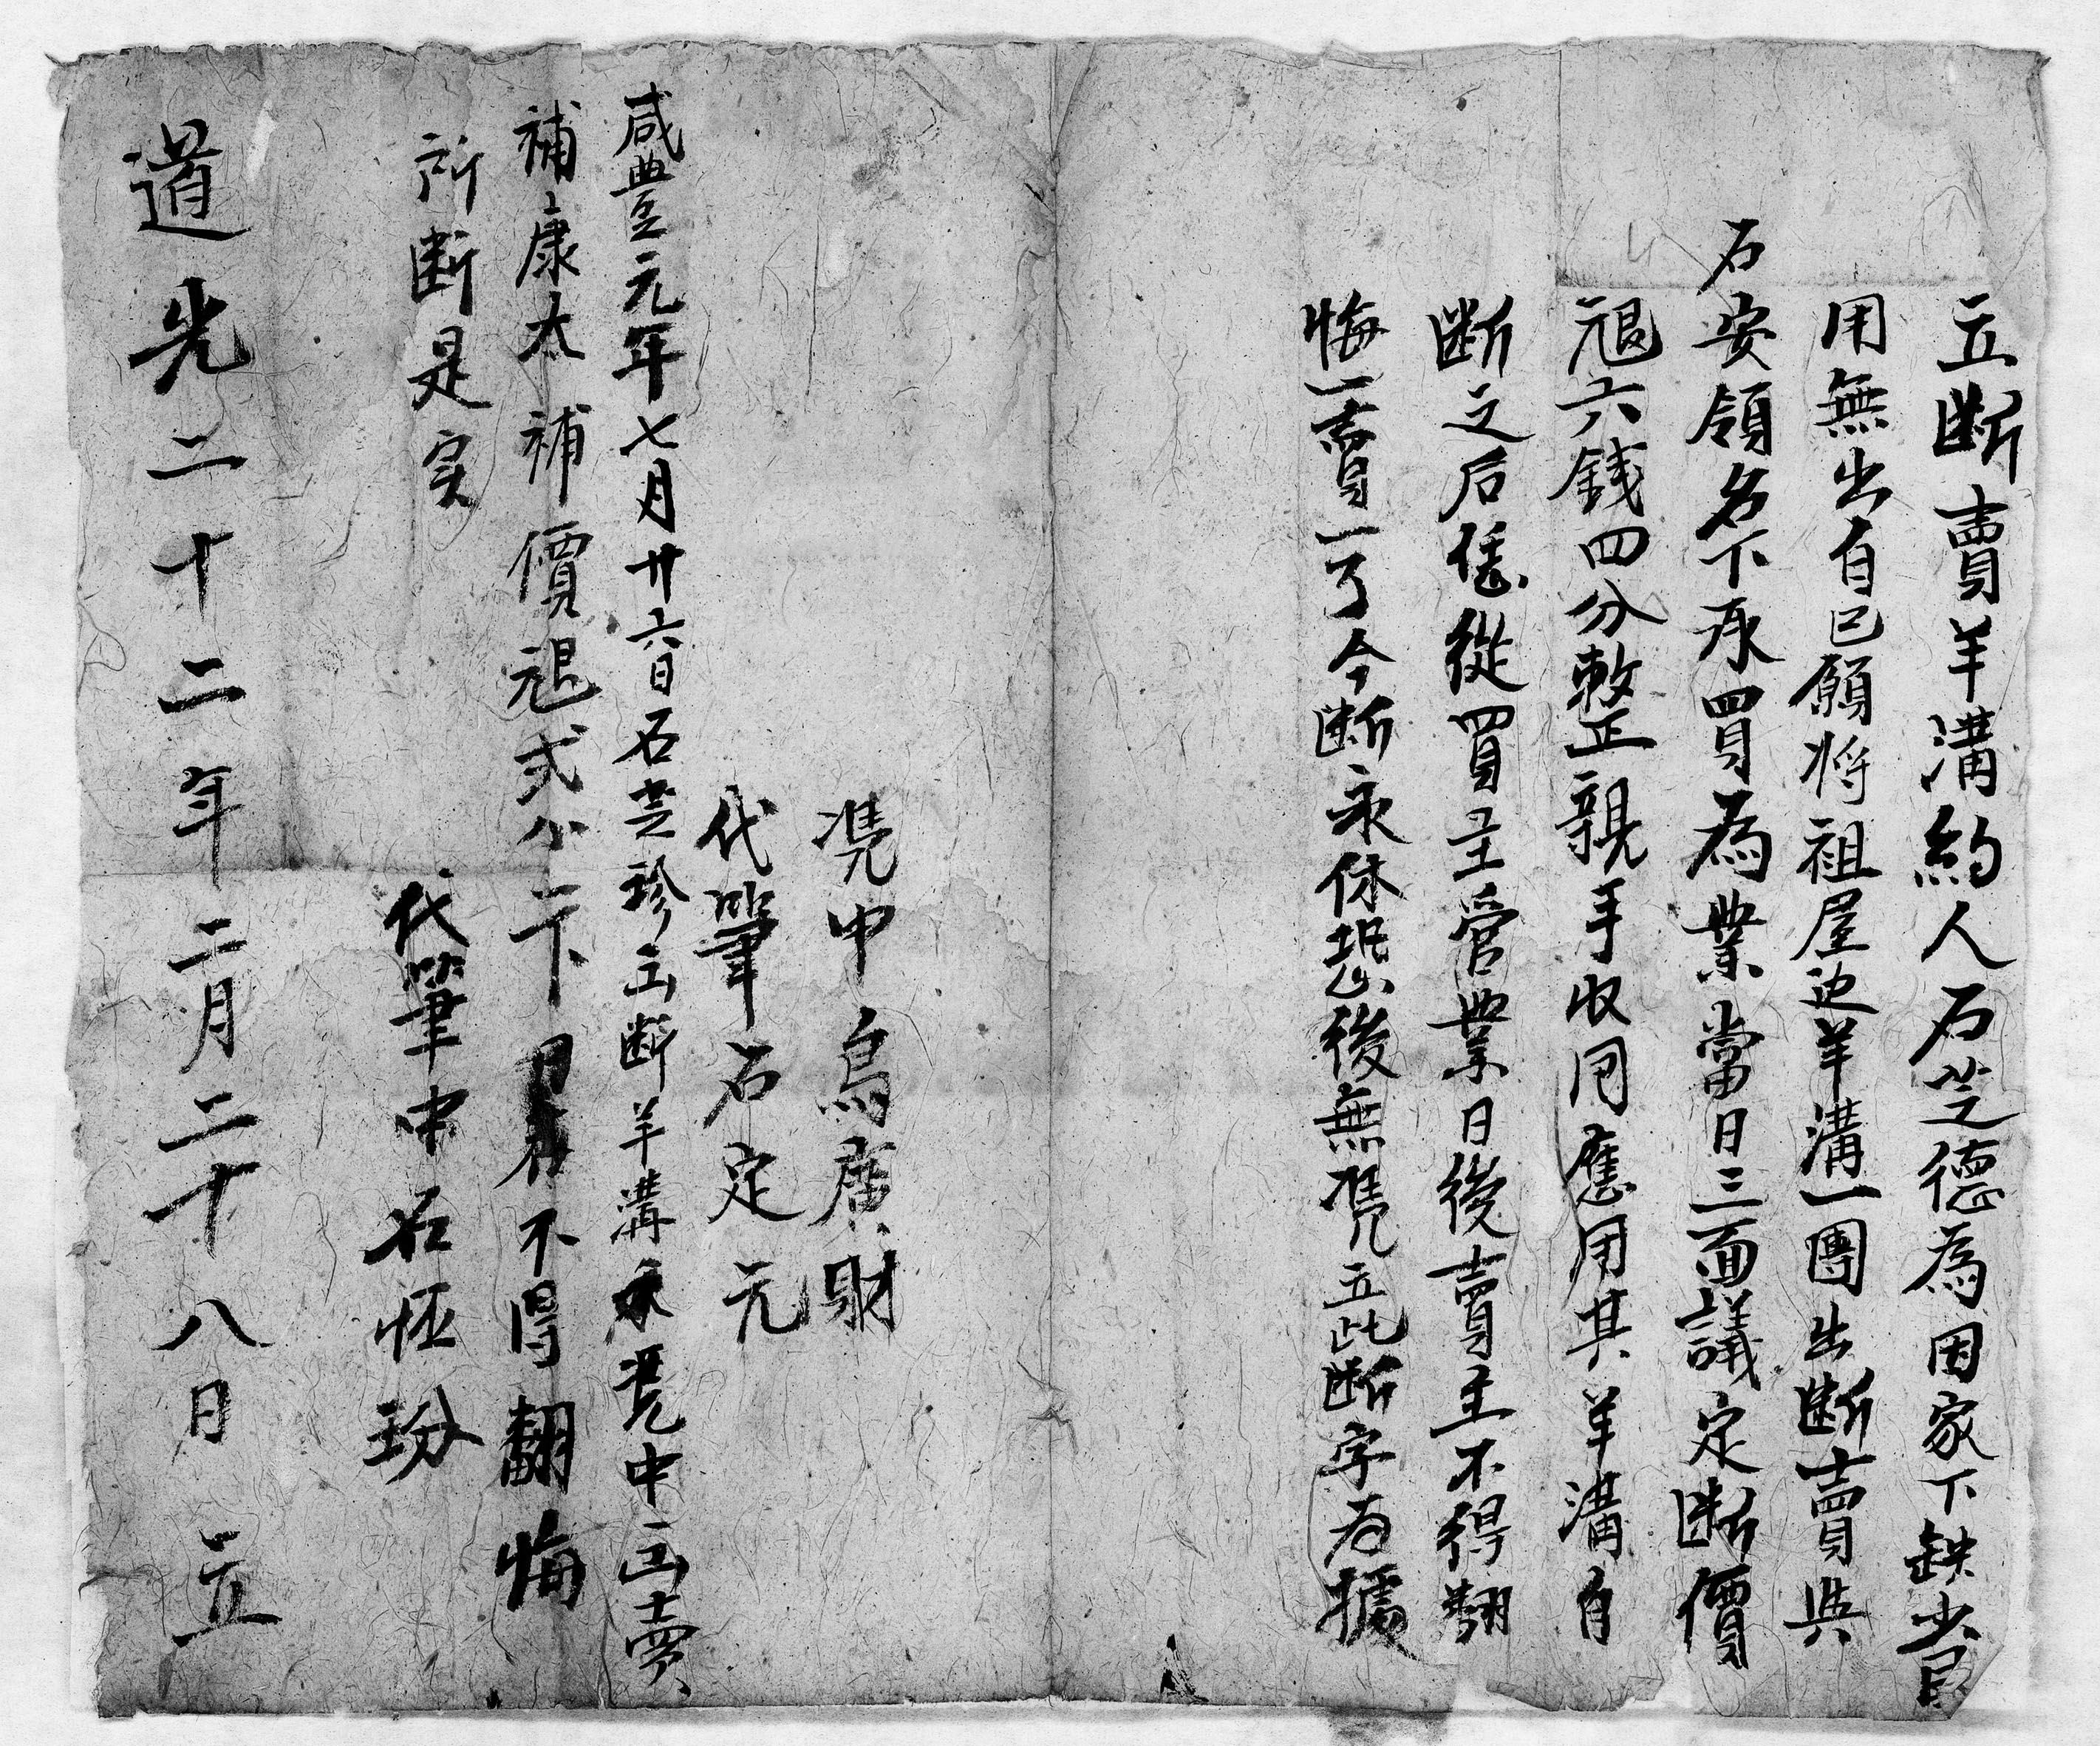 立断賣羊溝約人石芝德為因家下缺少
用無出自己願將祖屋边羊溝一團出断賣與
石安領名下承買為業當日三面議定断價
六錢四分整正親手收用應用其羊溝自
断之后恁從買主管業日後賣主不得翻
悔一賣一了今断永休恐後無凴立此断字為據
凴中烏廣財
代筆石定元
咸豊元年七月廿六日石芝珍立断羊溝永凴中立賣
補康太補價弍分一卞不得翻悔
所断是实
代筆中石恆玢
道光二十二年二月二十八日立